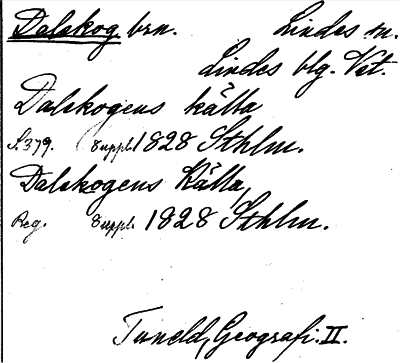 Dalskog. brn. Lindes sn.
Lindes blg. Vst.
Dalskogens källa
S. 379. Suppl. 1828 Sthlm.
Dalskogens Källa,
Reg. Suppl. 1828 Sthlm.
Tuneld, Geografi. II.